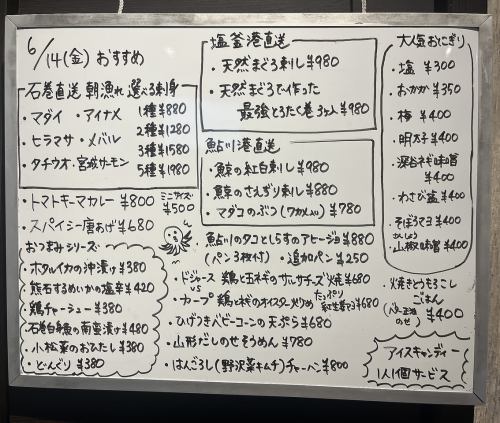 6/14(金) おすすめ
石巻直送 朝漁れ 選べる刺身
・マダイ ・アイナメ
・ヒラマサ ・メバル
・タチウオ ・宮城サーモン
1種¥880
2種¥1280
3種¥1580
5種¥1980
・トマトキーマカレー ¥800
ミニサイズ
¥500
・スパイシー唐あげ ¥680
おつまみシリーズ
・ホタルイカの沖漬け ¥380
・熊石するめいかの塩辛 ¥420
・鶏チャーシュー ¥380
・石巻白鮭の南蛮漬け ¥480
・小松菜のおひたし ¥380
・どんぐり ¥380
塩釜港直送
・天然まぐろ刺し ¥980
・天然まぐろで作った
最強とろたく巻 3ヶ入 ¥980
鮎川港直送
・鯨の紅白刺し ¥980
・鯨のさんぎり刺し ¥880
・マダコのぶつ(ワカメ入り) ¥780
・鮎川のタコとしらすのアヒージョ ¥880
(パン3枚付) ・追加パン ¥250
・ドジャース 鶏と玉ネギのサルサチーズ焼 ¥680
vs
・カープ 鶏と木ギのオイスター炒め たっぷり紅生姜のっけ ¥680
・ひげつきベビーコーンの天ぷら ¥680
・山形だしのせそうめん ¥780
・はんごろし(野沢菜キムチ)チャーハン ¥800
大人気おにぎり
・塩 ¥300
・おかか ¥350
・梅 ¥400
・明太子 ¥400
・深谷ネギ味噌
¥400
・わさび塩 ¥400
・そぼろマヨ ¥400
さんしょう
・山椒味噌 ¥400
・焼きとうもろこし
ごはん
(バター正油のせ) ¥400
アイスキャンディー
1人1個サービス